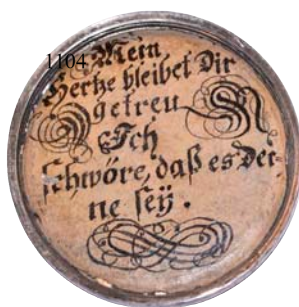 1104
Mein
Hertze bleibet Dir
getreu
Ich
schwöre, daß es Dei-
ne seÿ.